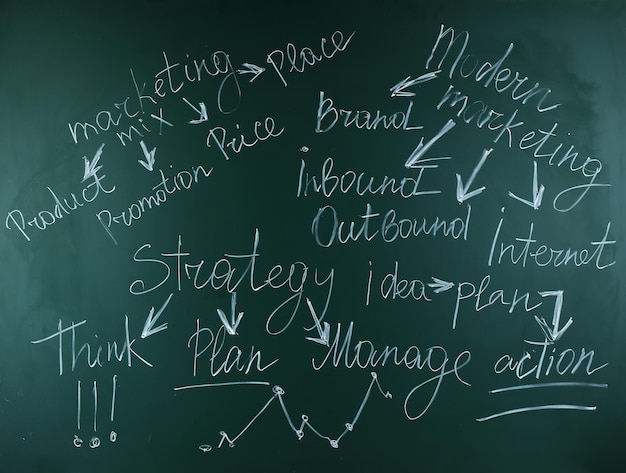 marketing mix
Place
Price
Product
Promotion
Modern marketing
Brand
Inbound
Outbound
Internet
Strategy
idea plan
Think
Plan
Manage
action
!!!